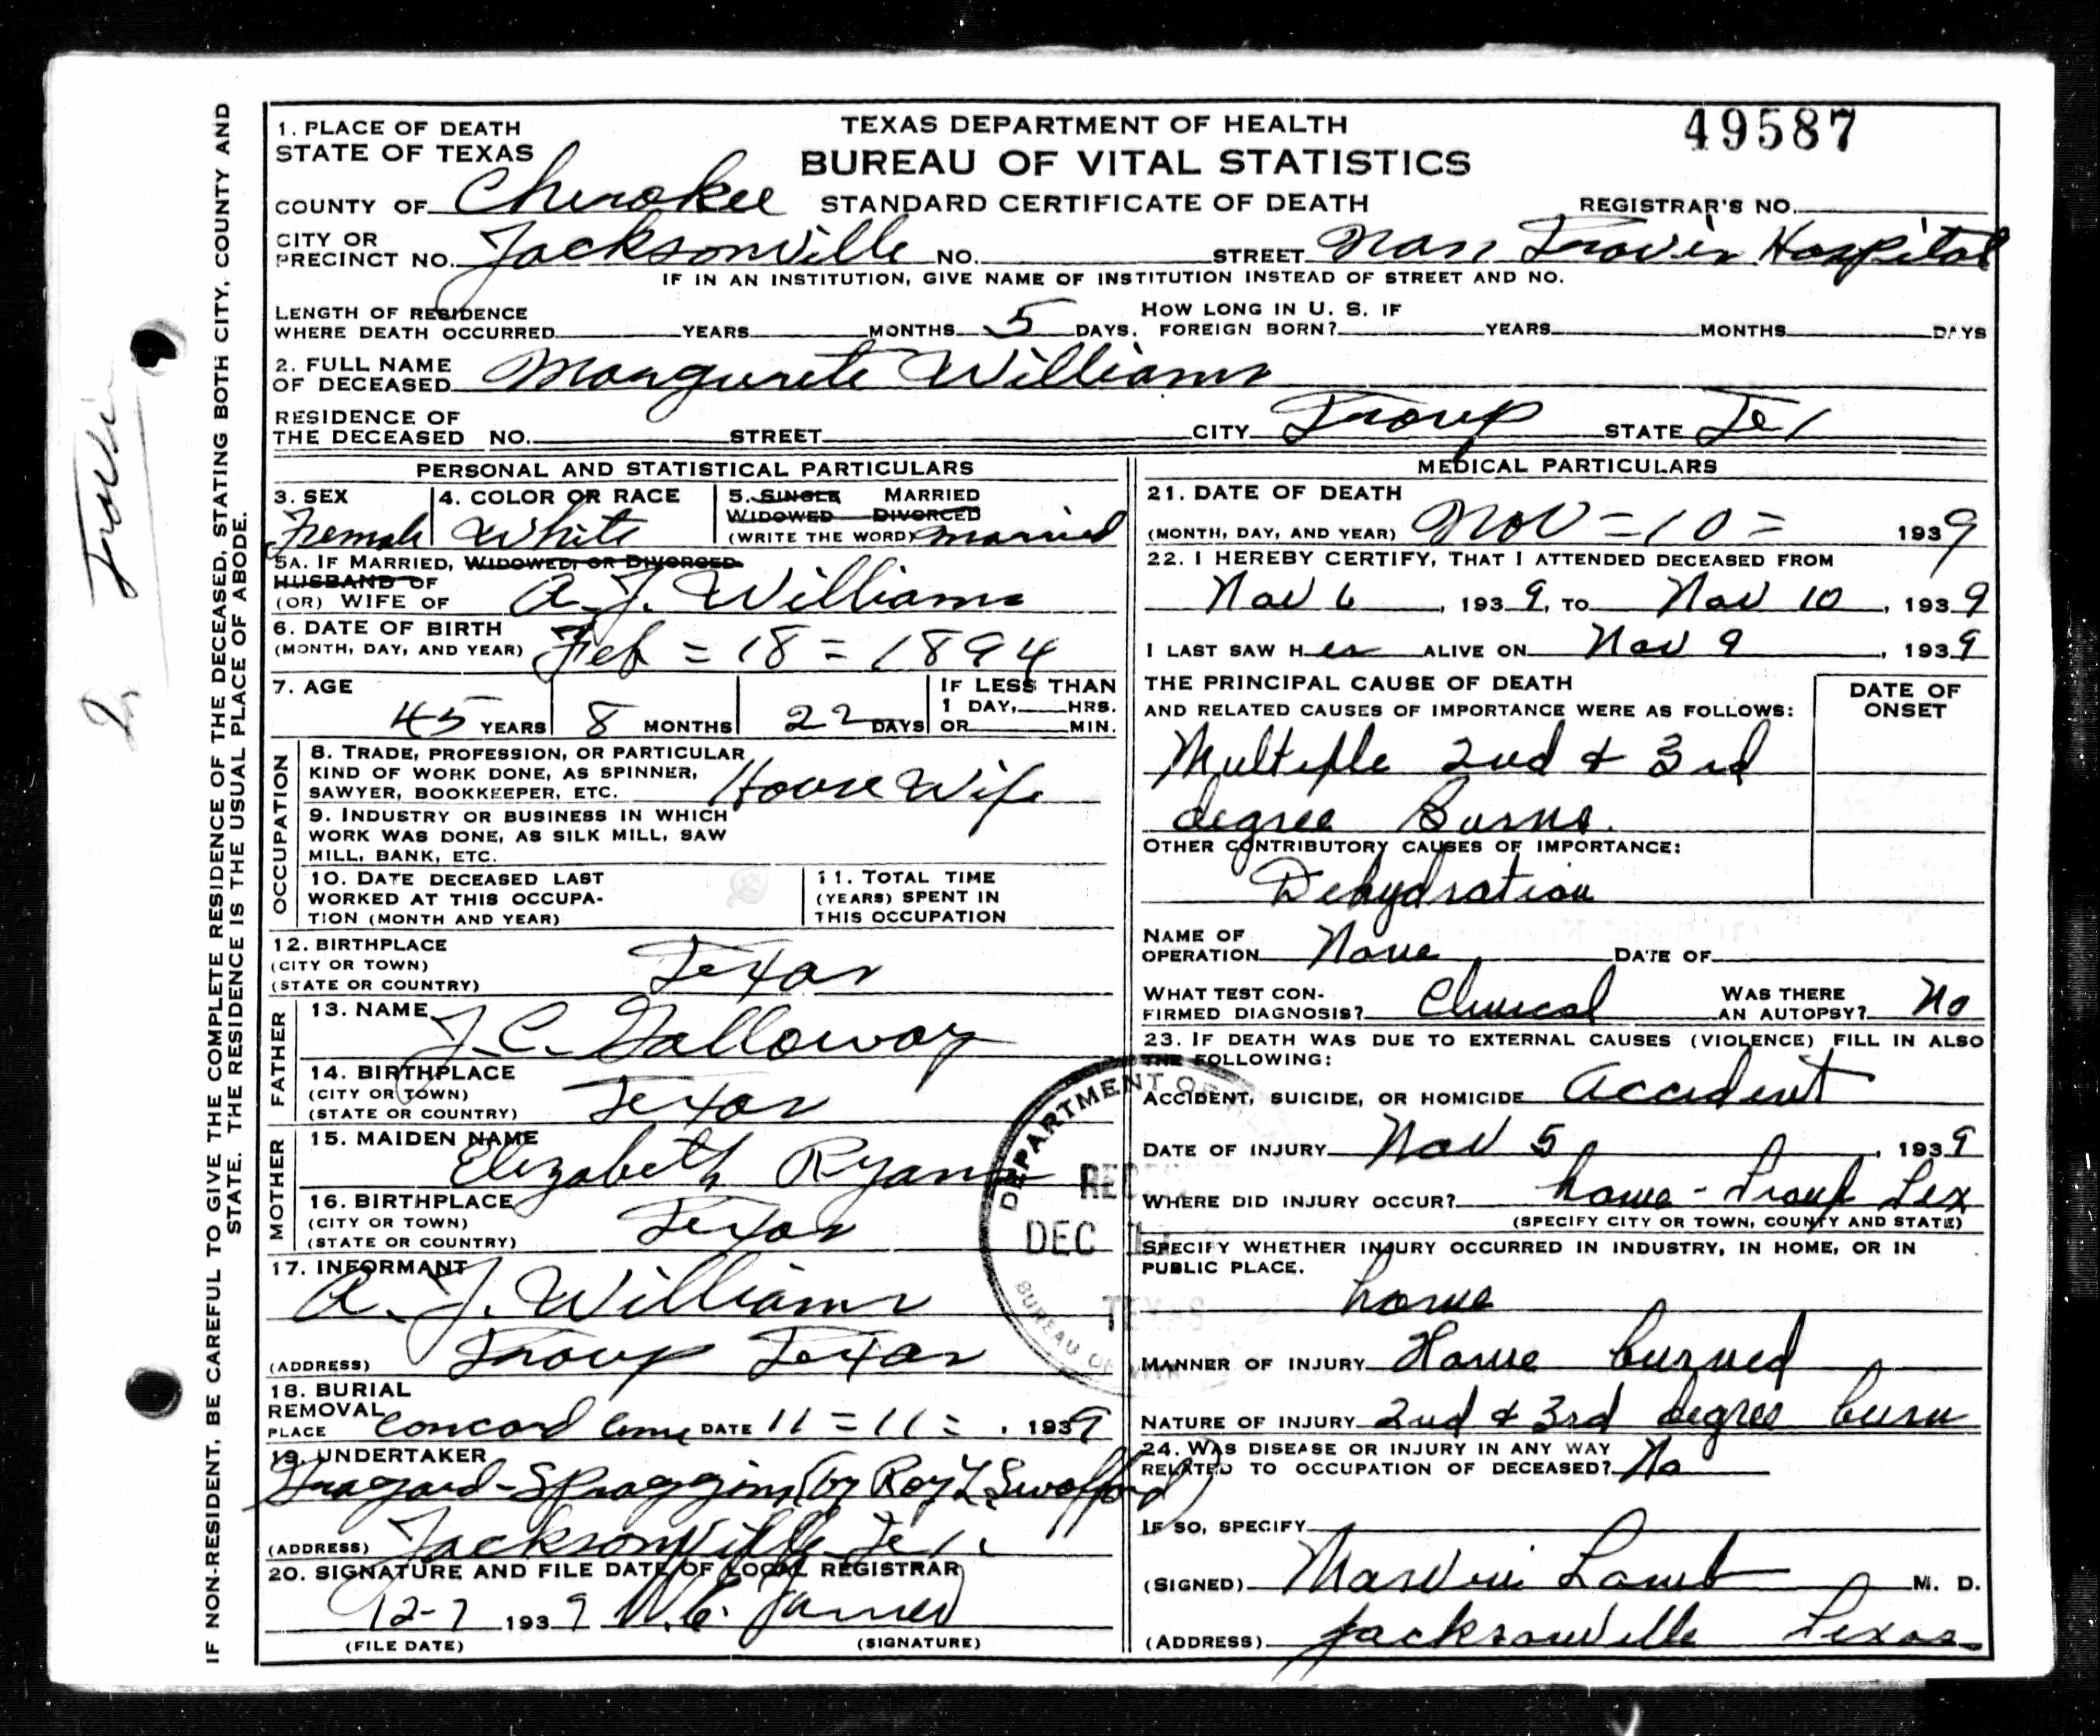 49587
TEXAS DEPARTMENT OF HEALTH
BUREAU OF VITAL STATISTICS
STANDARD CERTIFICATE OF DEATH
1. PLACE OF DEATH
STATE OF TEXAS
COUNTY OF Cherokee
REGISTRAR'S NO.
CITY OR
PRECINCT NO. Jacksonville NO. STREET Nan Travis Hospital
IF IN AN INSTITUTION, GIVE NAME OF INSTITUTION INSTEAD OF STREET AND NO.
LENGTH OF RESIDENCE
WHERE DEATH OCCURRED YEARS MONTHS 5 DAYS. HOW LONG IN U. S. IF FOREIGN BORN? YEARS MONTHS DAYS
2. FULL NAME
OF DECEASED Margurete Williams
RESIDENCE OF
THE DECEASED NO. STREET CITY Troup STATE Tex
PERSONAL AND STATISTICAL PARTICULARS
3. SEX 4. COLOR OR RACE 5. SINGLE MARRIED
WIDOWED DIVORCED
Female White (WRITE THE WORD) married
5A. IF MARRIED, WIDOWED, OR DIVORCED
HUSBAND OF
(OR) WIFE OF A. J. Williams
6. DATE OF BIRTH
(MONTH, DAY, AND YEAR) Feb = 18 = 1894
7. AGE IF LESS THAN
1 DAY, HRS.
45 YEARS 8 MONTHS 22 DAYS OR MIN.
OCCUPATION
8. TRADE, PROFESSION, OR PARTICULAR
KIND OF WORK DONE, AS SPINNER,
SAWYER, BOOKKEEPER, ETC. House Wife
9. INDUSTRY OR BUSINESS IN WHICH
WORK WAS DONE, AS SILK MILL, SAW
MILL, BANK, ETC.
10. DATE DECEASED LAST
WORKED AT THIS OCCUPA-
TION (MONTH AND YEAR)
11. TOTAL TIME
(YEARS) SPENT IN
THIS OCCUPATION
12. BIRTHPLACE
(CITY OR TOWN)
(STATE OR COUNTRY) Texas
FATHER
13. NAME J. C. Galloway
14. BIRTHPLACE
(CITY OR TOWN)
(STATE OR COUNTRY) Texas
MOTHER
15. MAIDEN NAME
Elizabeth Ryan
16. BIRTHPLACE
(CITY OR TOWN)
(STATE OR COUNTRY) Texas
17. INFORMANT
A. J. Williams
(ADDRESS) Troup Texas
18. BURIAL
REMOVAL
PLACE Concord Cem DATE 11 = 11 = , 1939
19. UNDERTAKER
(by Roy L. Swofford)
(ADDRESS) Jacksonville Tex.
20. SIGNATURE AND FILE DATE OF LOCAL REGISTRAR
12-7 1939
(FILE DATE) (SIGNATURE)
MEDICAL PARTICULARS
21. DATE OF DEATH
(MONTH, DAY, AND YEAR) Nov = 10 = 1939
22. I HEREBY CERTIFY, THAT I ATTENDED DECEASED FROM
Nov 6, 1939, TO Nov 10, 1939
I LAST SAW HER ALIVE ON Nov 9, 1939
THE PRINCIPAL CAUSE OF DEATH
AND RELATED CAUSES OF IMPORTANCE WERE AS FOLLOWS:
DATE OF
ONSET
Multiple 2nd & 3rd
degree Burns.
OTHER CONTRIBUTORY CAUSES OF IMPORTANCE:
Dehydration
NAME OF
OPERATION None DATE OF
WHAT TEST CON-
FIRMED DIAGNOSIS? Clinical WAS THERE AN AUTOPSY? No
23. IF DEATH WAS DUE TO EXTERNAL CAUSES (VIOLENCE) FILL IN ALSO
THE FOLLOWING:
ACCIDENT, SUICIDE, OR HOMICIDE Accident
DATE OF INJURY Nov 5, 1939
WHERE DID INJURY OCCUR? home - Troup Tex
(SPECIFY CITY OR TOWN, COUNTY AND STATE)
SPECIFY WHETHER INJURY OCCURRED IN INDUSTRY, IN HOME, OR IN
PUBLIC PLACE.
home
MANNER OF INJURY Home burned
NATURE OF INJURY 2nd & 3rd degree burn
24. WAS DISEASE OR INJURY IN ANY WAY
RELATED TO OCCUPATION OF DECEASED? No
IF SO, SPECIFY
(SIGNED) Marvin Lamb M. D.
(ADDRESS) Jacksonville Texas
DEPARTMENT OF
REC
DEC
TEXAS
BUREAU OF
IF NON-RESIDENT, BE CAREFUL TO GIVE THE COMPLETE RESIDENCE OF THE DECEASED, STATING BOTH CITY, COUNTY AND
STATE. THE RESIDENCE IS THE USUAL PLACE OF ABODE.